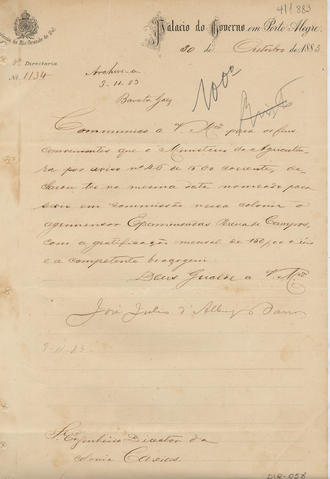 411883
Palacio do Governo em Porto Alegre,
30 de Outubro de 1883
Directoria
N. 1134
Archive-se
3-11-83
Barata Góes
1000
Communico a Vmcê para os fins
convenientes que o Ministerio da Agricultura
por aviso nº de 15 do corrente,
na mesma data nomeado para
servir em commissão nessa colonia o
agrimensor Epaminondas de Campos,
com a gratificação mensal de
e a competente bagagem.
Deus Guarde a Vmcê
José Julio d'Albuqe Barros
3-11-83
Sr. Engenheiro Director da
Colonia Caxias.